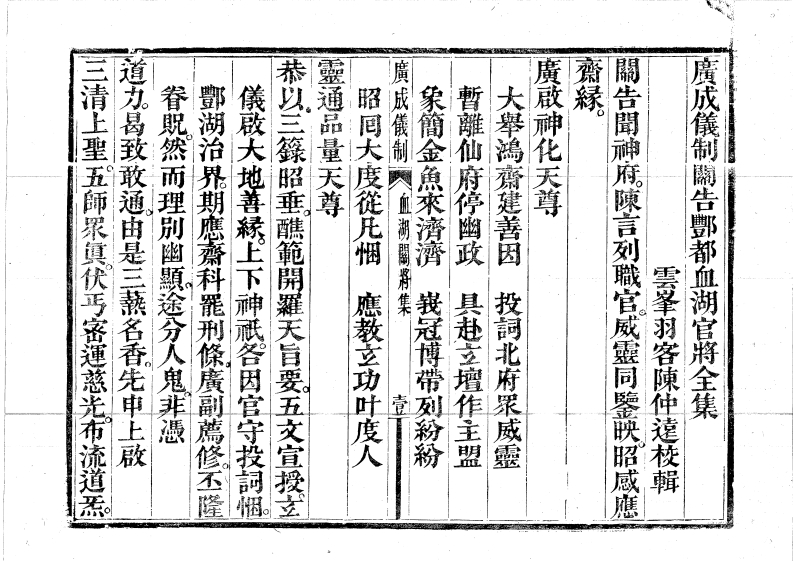 廣成儀制關告酆都血湖官將全集
雲峯羽客陳仲遠校輯
關告聞神府。陳言列職官。威靈同鑒映。昭感應
齋緣。
廣啟神化天尊
大舉鴻齋建善因　投詞北府眾威靈
暫離仙府停幽政　具赴玄壇作主盟
象簡金魚來濟濟　峩冠博帶列紛紛
廣成儀制　血湖關將集　壹
昭回大度從凡悃　應教立功叶度人
靈通品量天尊
恭以。三籙昭垂。醮範開羅天旨要。五文宣授。玄
儀啟大地善緣。上下神祇。各因官守投詞悃。
酆湖治界。期應齋科罷刑條。廣副薦修。丕隆
眷貺。然而理別幽顯。途分人鬼。非憑
道力。曷致敢通。由是三爇名香。先申上啟
三清上聖。五師眾真。伏丐密運慈光。布流道炁。